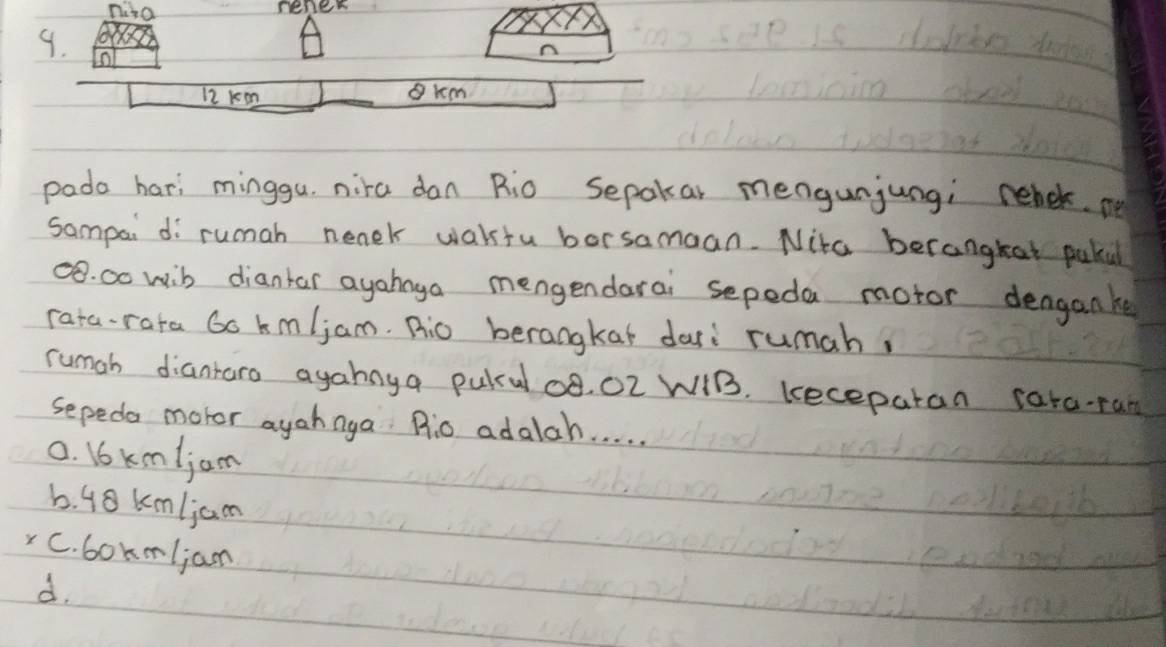 nita nenek
9.
12 km 8 km
pada hari minggu. nira dan Rio Sepakat mengunjungi nenek.
Sampai di rumah nenek waktu borsamaan. Nita berangkat pukul
08.00 wib diantar ayahnya mengendarai sepeda motor dengan ke
rata-rata 60 km/jam. Rio berangkat dari rumah,
rumah diantara ayahnya pukul 08.02 WIB. kecepatan rata-rata
Sepeda motor ayahnya Rio adalah.....
a. 16 km/jam
b. 48 km/jam
x C. 60 km/jam
d.